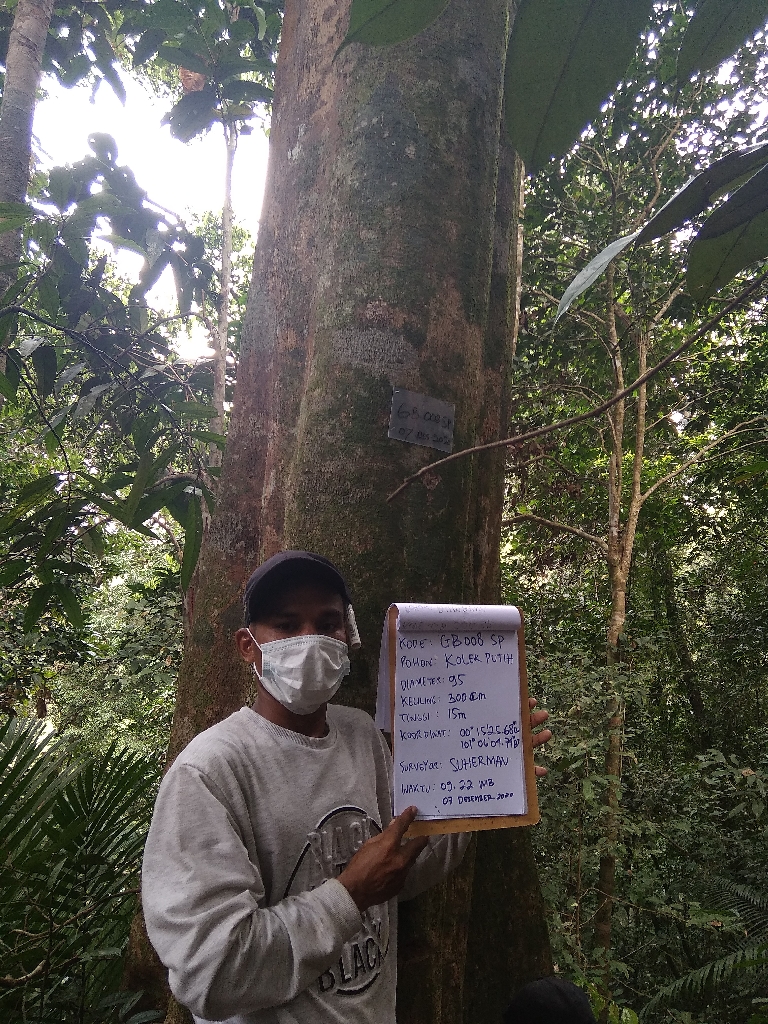 GB 008 SP
07 DES 2020
KODE: GB008 SP
POHON: KOLEK PUTIH
DIAMETER: 95
KELILING: 300 cm
TINGGI: 15m
KOORDINAT: 00° 15'25.68"
101° 06'01.79"
SURVEYOR: SUHERMAN
WAKTU: 09.22 WIB
07 DESEMBER 2020
BLACK
BLACK